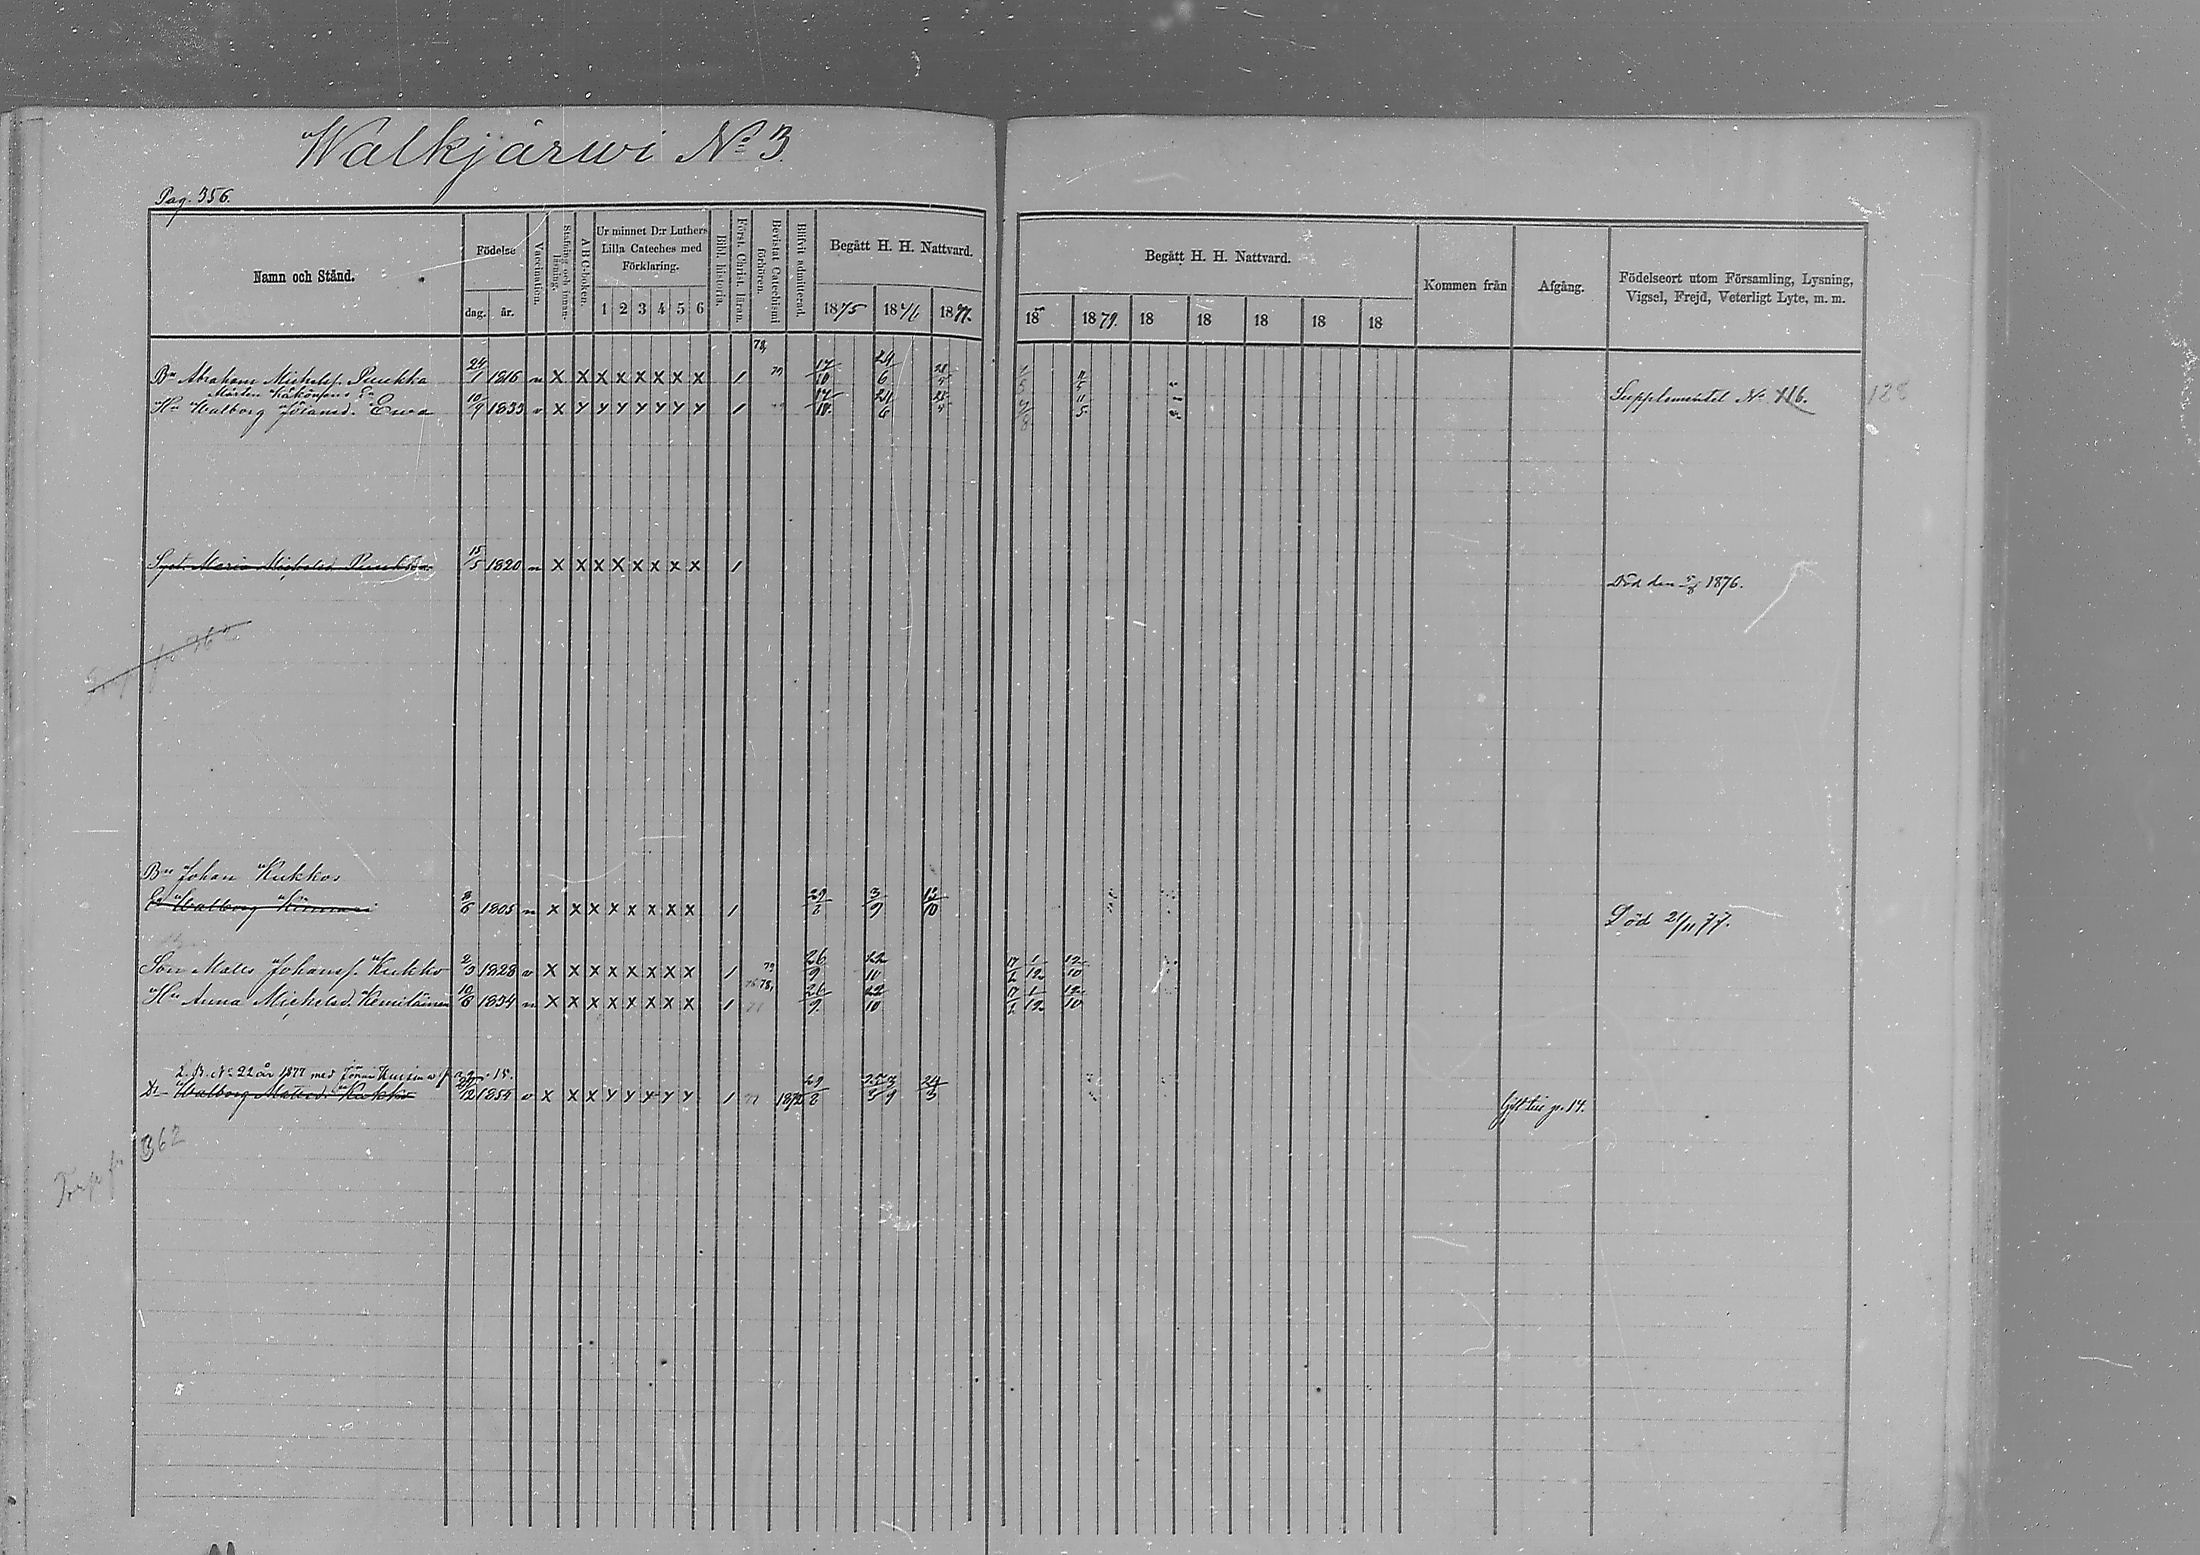 Walkjärwi No 3.
Pag. 356.
Namn och Stånd.
Födelse
dag. år.
Vaccination.
Stafning och innanläsning.
ABC-boken.
Ur minnet D:r Luthers Lilla Cateches med Förklaring.
1 2 3 4 5 6
Bibl. historia.
Först. Christ. läran.
Bevistat Catechismi förhören.
Blifvit admitterad.
Begått H. H. Nattvard.
1875 1876 1877.
Begått H. H. Nattvard.
18 1879. 18 18 18 18 18
Kommen från
Afgång.
Födelseort utom Församling, Lysning, Vigsel, Frejd, Veterligt Lyte, m. m.
78,
Bn Abraham Michelsf. Puukka 24/1 1816 X X X X X X X X X 1 79 17/10 24/6 11/5
Mårten Kakönens
Hu Walborg Johansd. 10/9 1833 v X Y Y Y Y Y Y Y 1 17/10 24/6 11/5 Supplementet No 116. 128
Syst. Maria Michelsd. Puukka 15/5 1820 X X X X X X X X X 1
Död den 1876.
Bn Johan Kukkos
Walborg 8/6 1805 X X X X X X X X X 1 29/8 3/9 Död 21/11 77.
Son Matts Johansf. Kukko 2/3 1828 v X X X X X X X X X 1 79 26/9 22/10 1/12 12/10
78,
Hu Anna Michelsd. Kemiläinen 10/6 1834 X X X X X X X X X 1 26/9 22/10 1/12 12/10
L. B. No 22 år 1877 med p. 15.
Dr Walborg Mattsd. Kukko /12 1854 v X X X Y Y Y Y Y 1 1872 29/8 24/3 Gift till p. 14.
362